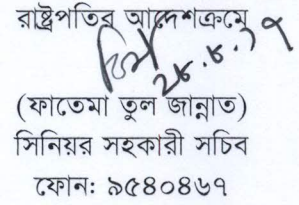 রাষ্ট্রপতির আদেশক্রমে
২৮.৮.১৭
(ফাতেমা তুল জান্নাত)
সিনিয়র সহকারী সচিব
ফোন: ৯৫৪০৪৬৭